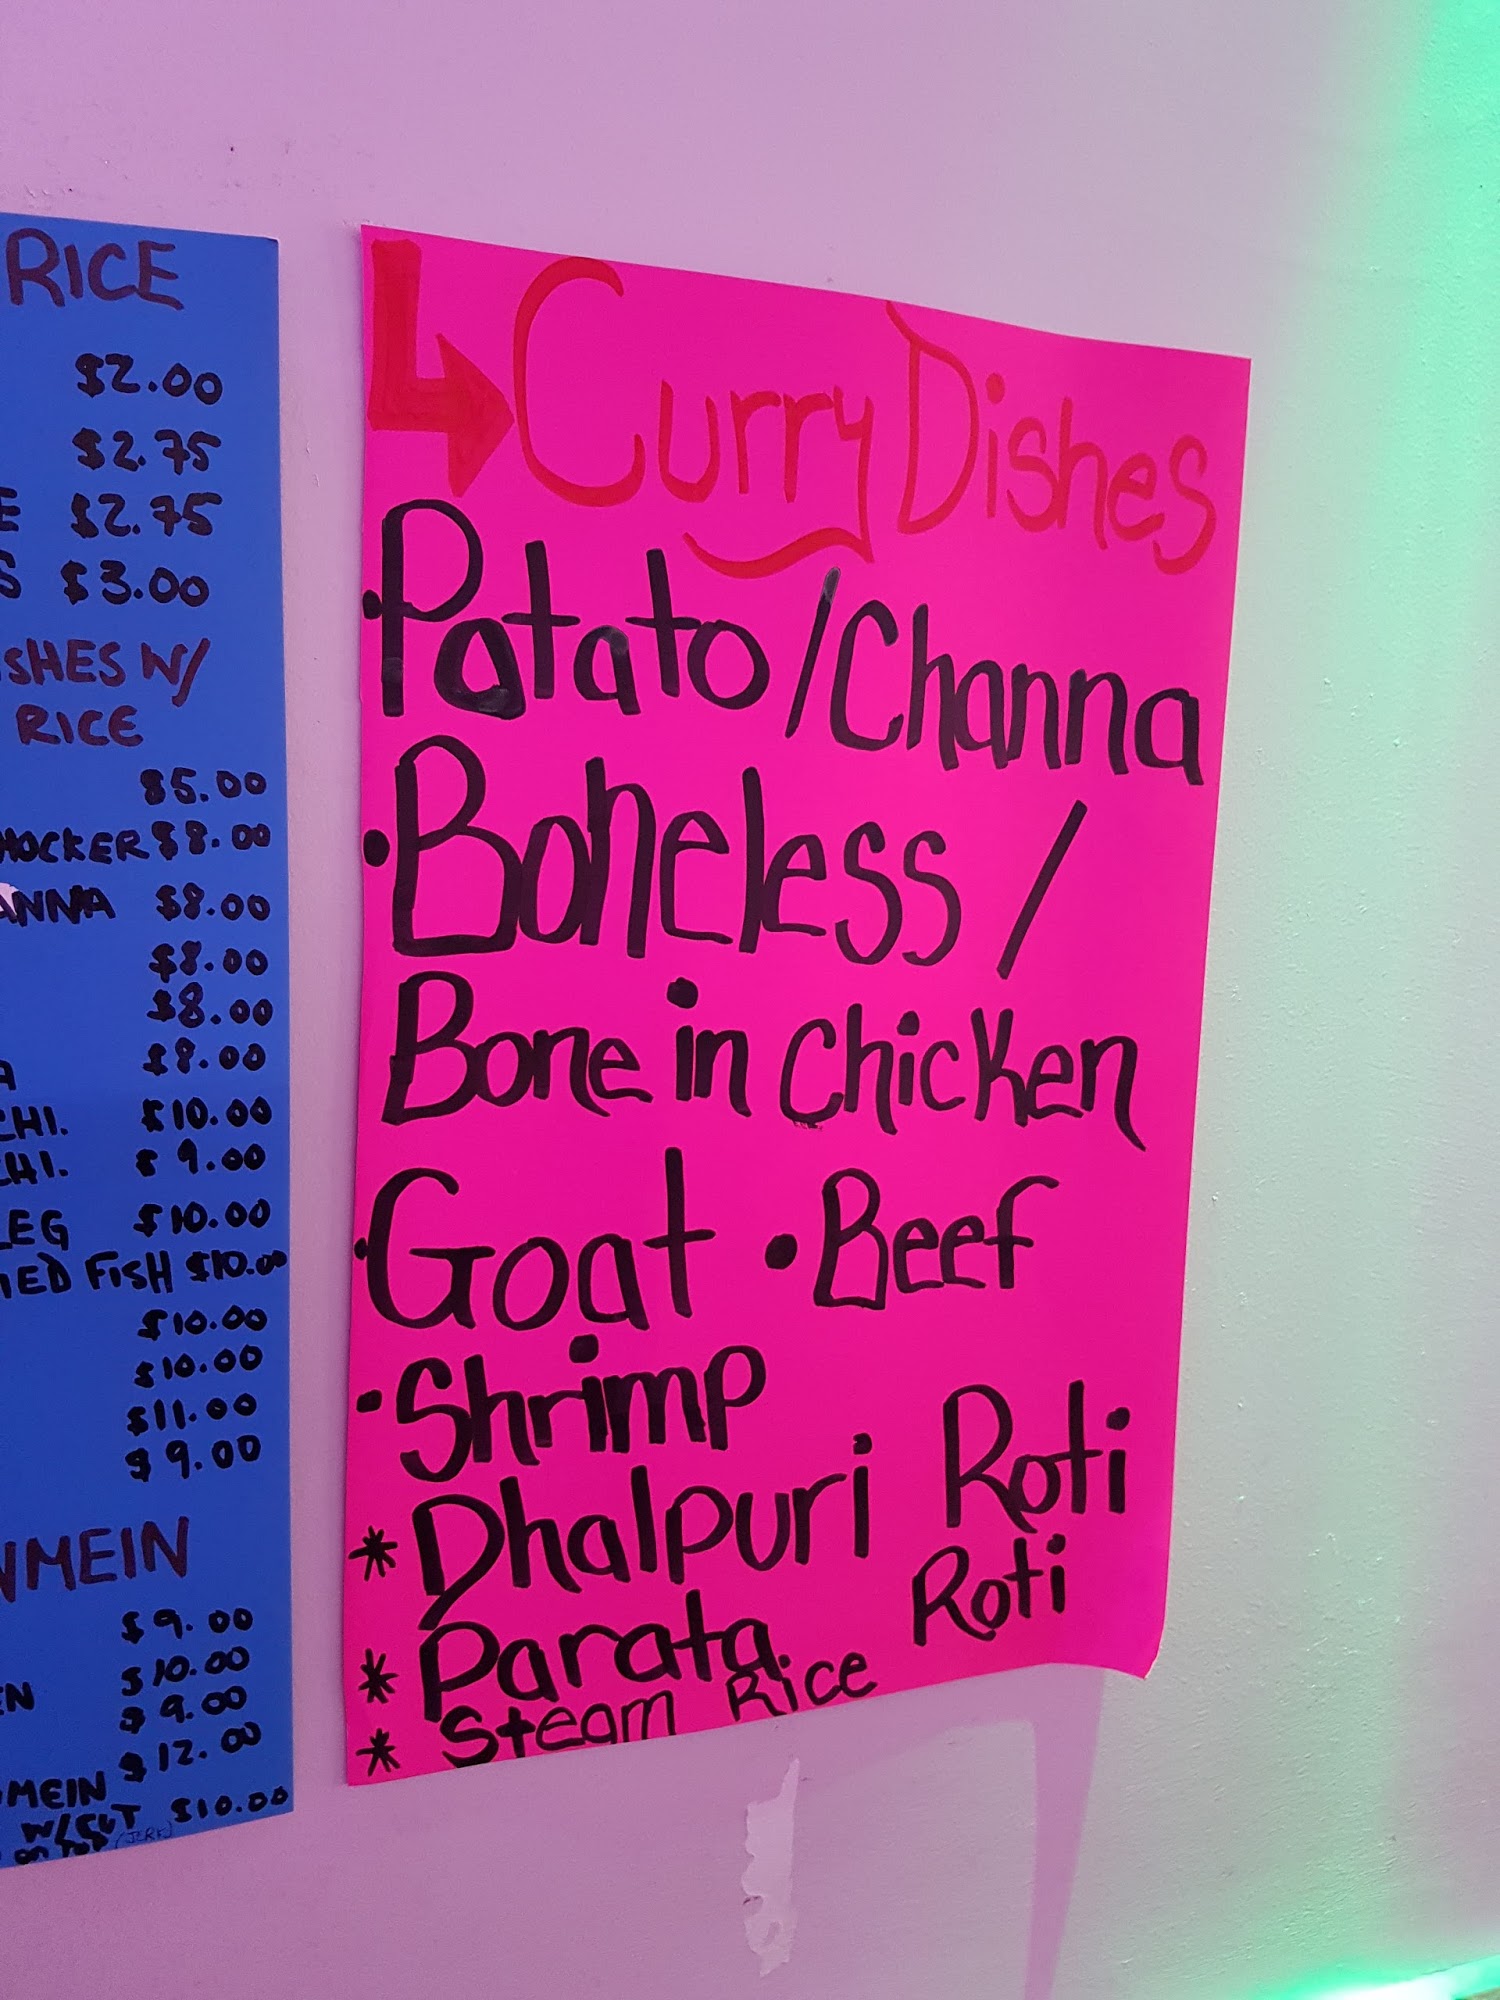 RICE
$2.00
$2.75
$2.75
$3.00
W/
RICE
$5.00
$8.00
$8.00
$8.00
$8.00
$8.00
CHI. $10.00
$9.00
LEG $10.00
FISH $10.00
$10.00
$10.00
$11.00
$9.00
$9.00
$10.00
$9.00
$12.00
W/CUT $10.00
on TOP (JERK)
Curry Dishes
• Potato / Channa
• Boneless /
Bone in Chicken
• Goat • Beef
• Shrimp
* Dhalpuri Roti
* Parata Roti
* Steam Rice